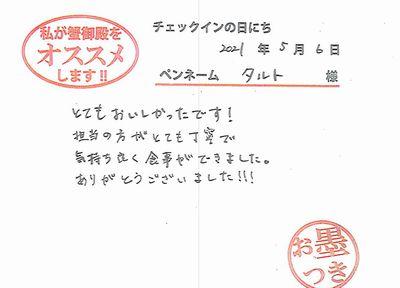 私が蟹御殿を
オススメ
します!!
チェックインの日にち
2021 年 5 月 6 日
ペンネーム タルト 様
とてもおいしかったです!
担当の方がとても丁寧で
気持ち良く食事ができました。
ありがとうございました!!!
お墨
つき